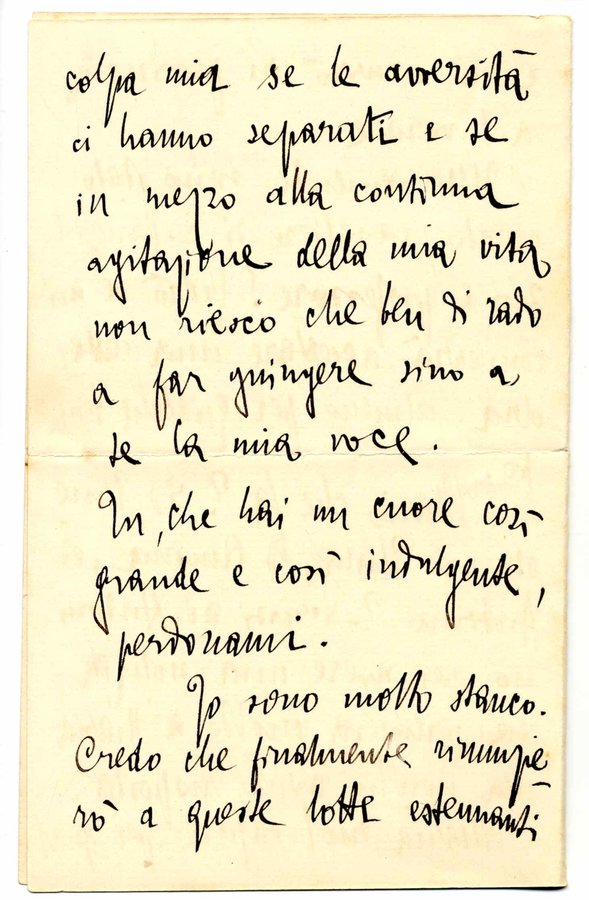 colpa mia se le avversità
ci hanno separati e se
in mezzo alla continua
agitazione della mia vita
non riesco che ben di rado
a far giungere sino a
te la mia voce.
Tu, che hai un cuore così
grande e così indulgente,
perdonami.
Io sono molto stanco.
Credo che finalmente rinunzie
rò a queste lotte estenuanti